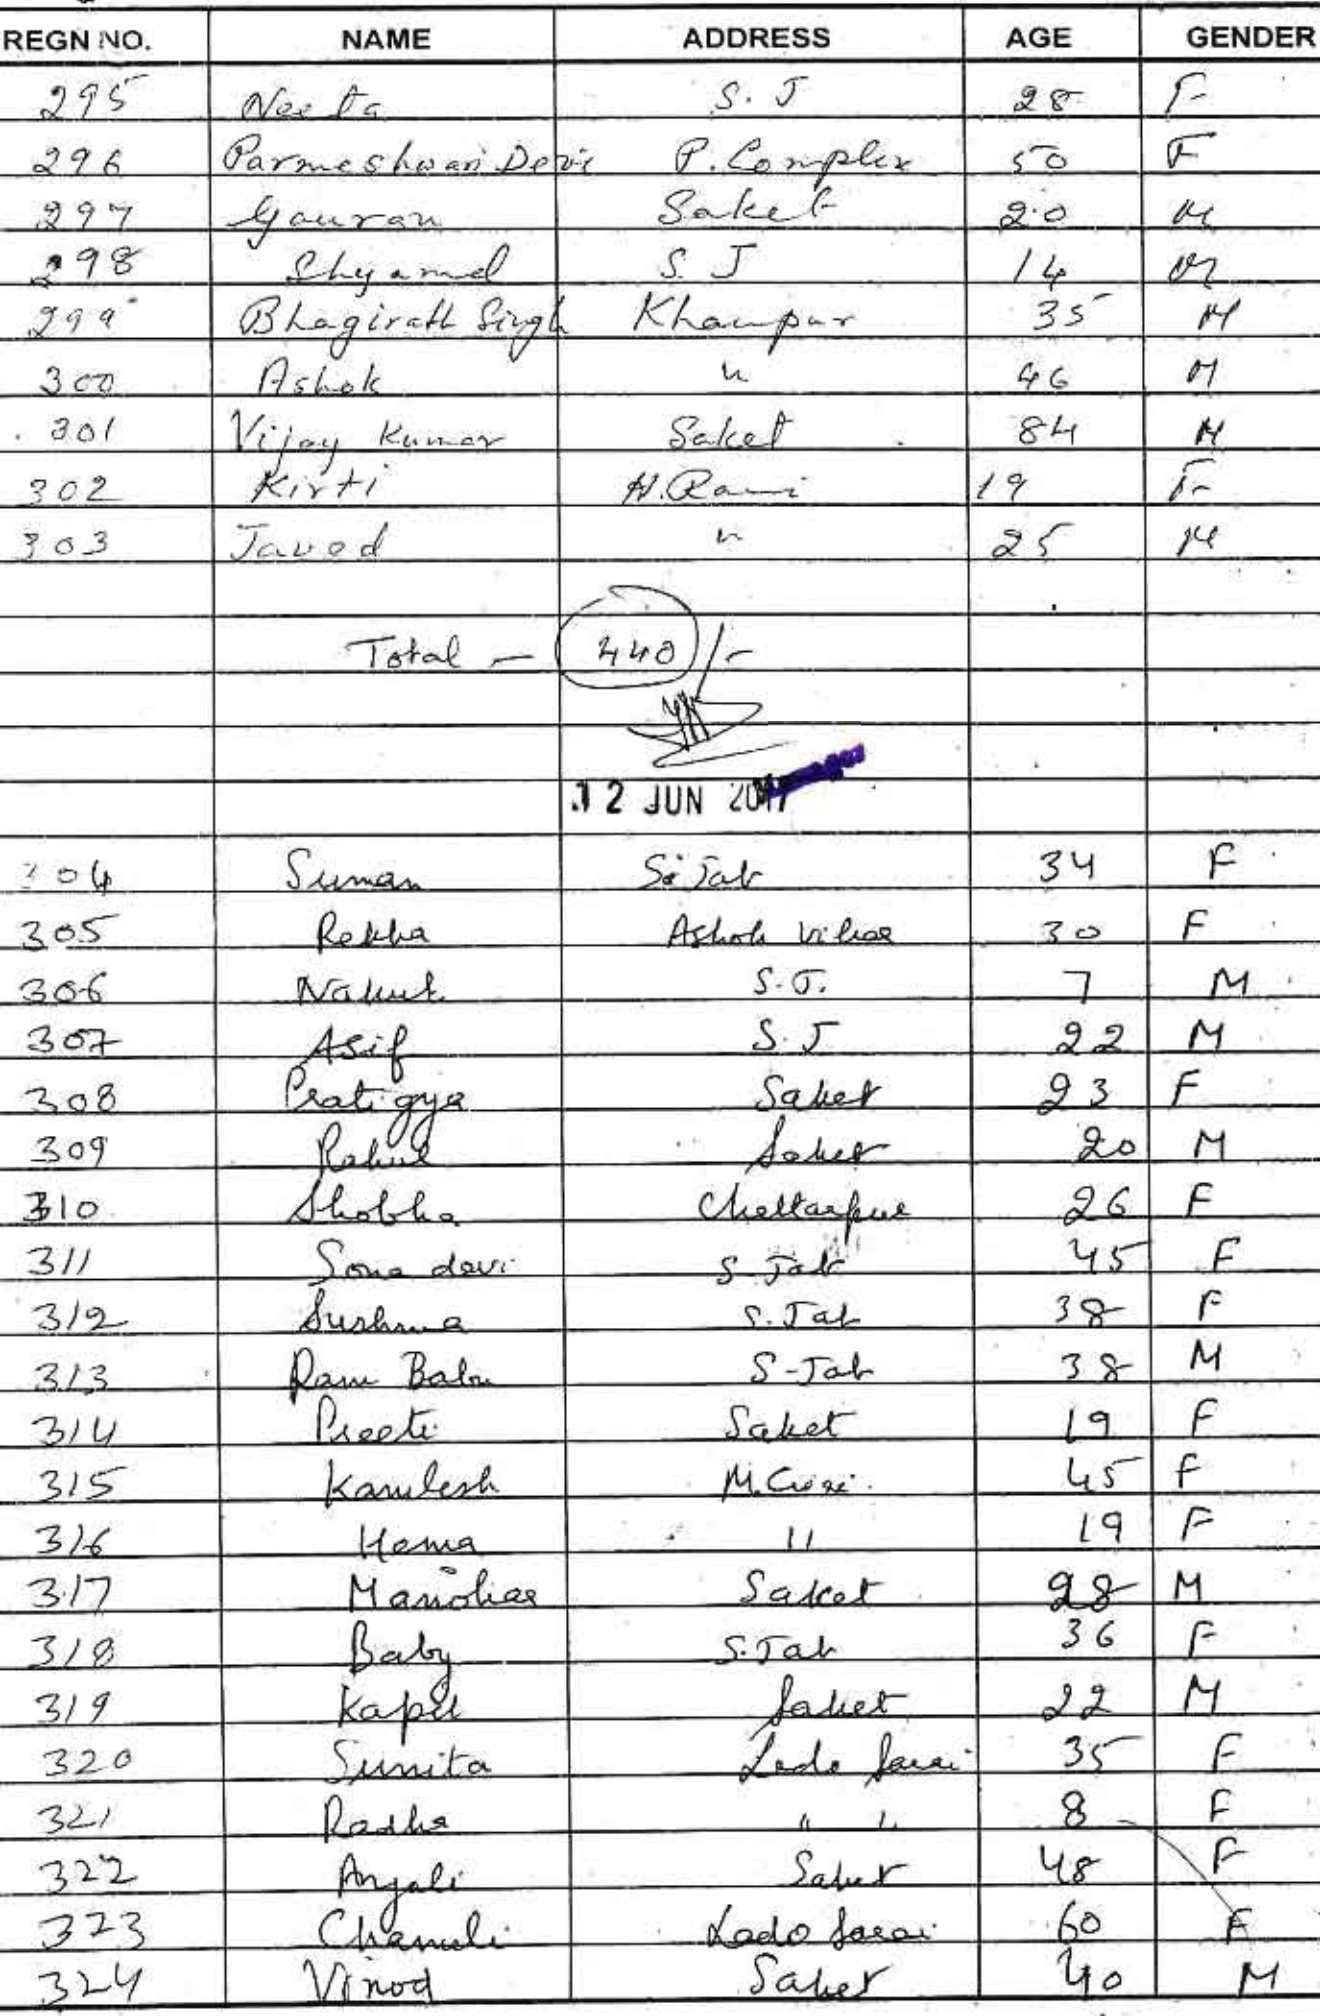 REGN NO. NAME ADDRESS AGE GENDER
295 Neeta S. J 28 F
296 Parmeshwari Devi P. Complex 50 F
297 Gaurav Saket 20 M
298 Shyamal S. J 14 M
299 Bhagirath Singh Khanpur 35 M
300 Ashok " 46 M
301 Vijay Kumar Saket 84 M
302 Kirti H. Rani 19 F
303 Javed " 25 M
Total - 440/-
12 JUN 2017
304 Suman S. Jab 34 F
305 Rekha Ashok Vihar 30 F
306 Nakul S. J. 7 M
307 Asif S. J 22 M
308 Pratigya Saket 23 F
309 Rahul Saket 20 M
310 Shobha Chattarpur 26 F
311 Sona devi S. Jab 45 F
312 Sushma S. Jab 38 F
313 Ram Babu S-Jab 38 M
314 Preeti Saket 19 F
315 Kamlesh 45 F
316 Hema " 19 F
317 Manohar Saket 28 M
318 Baby S. Jab 36 F
319 Kapil Saket 22 M
320 Sunita Lado Sarai 35 F
321 Radha " " 8 F
322 Anjali Saket 48 F
323 Chameli Lado Sarai 60 F
324 Vinod Saket 40 M